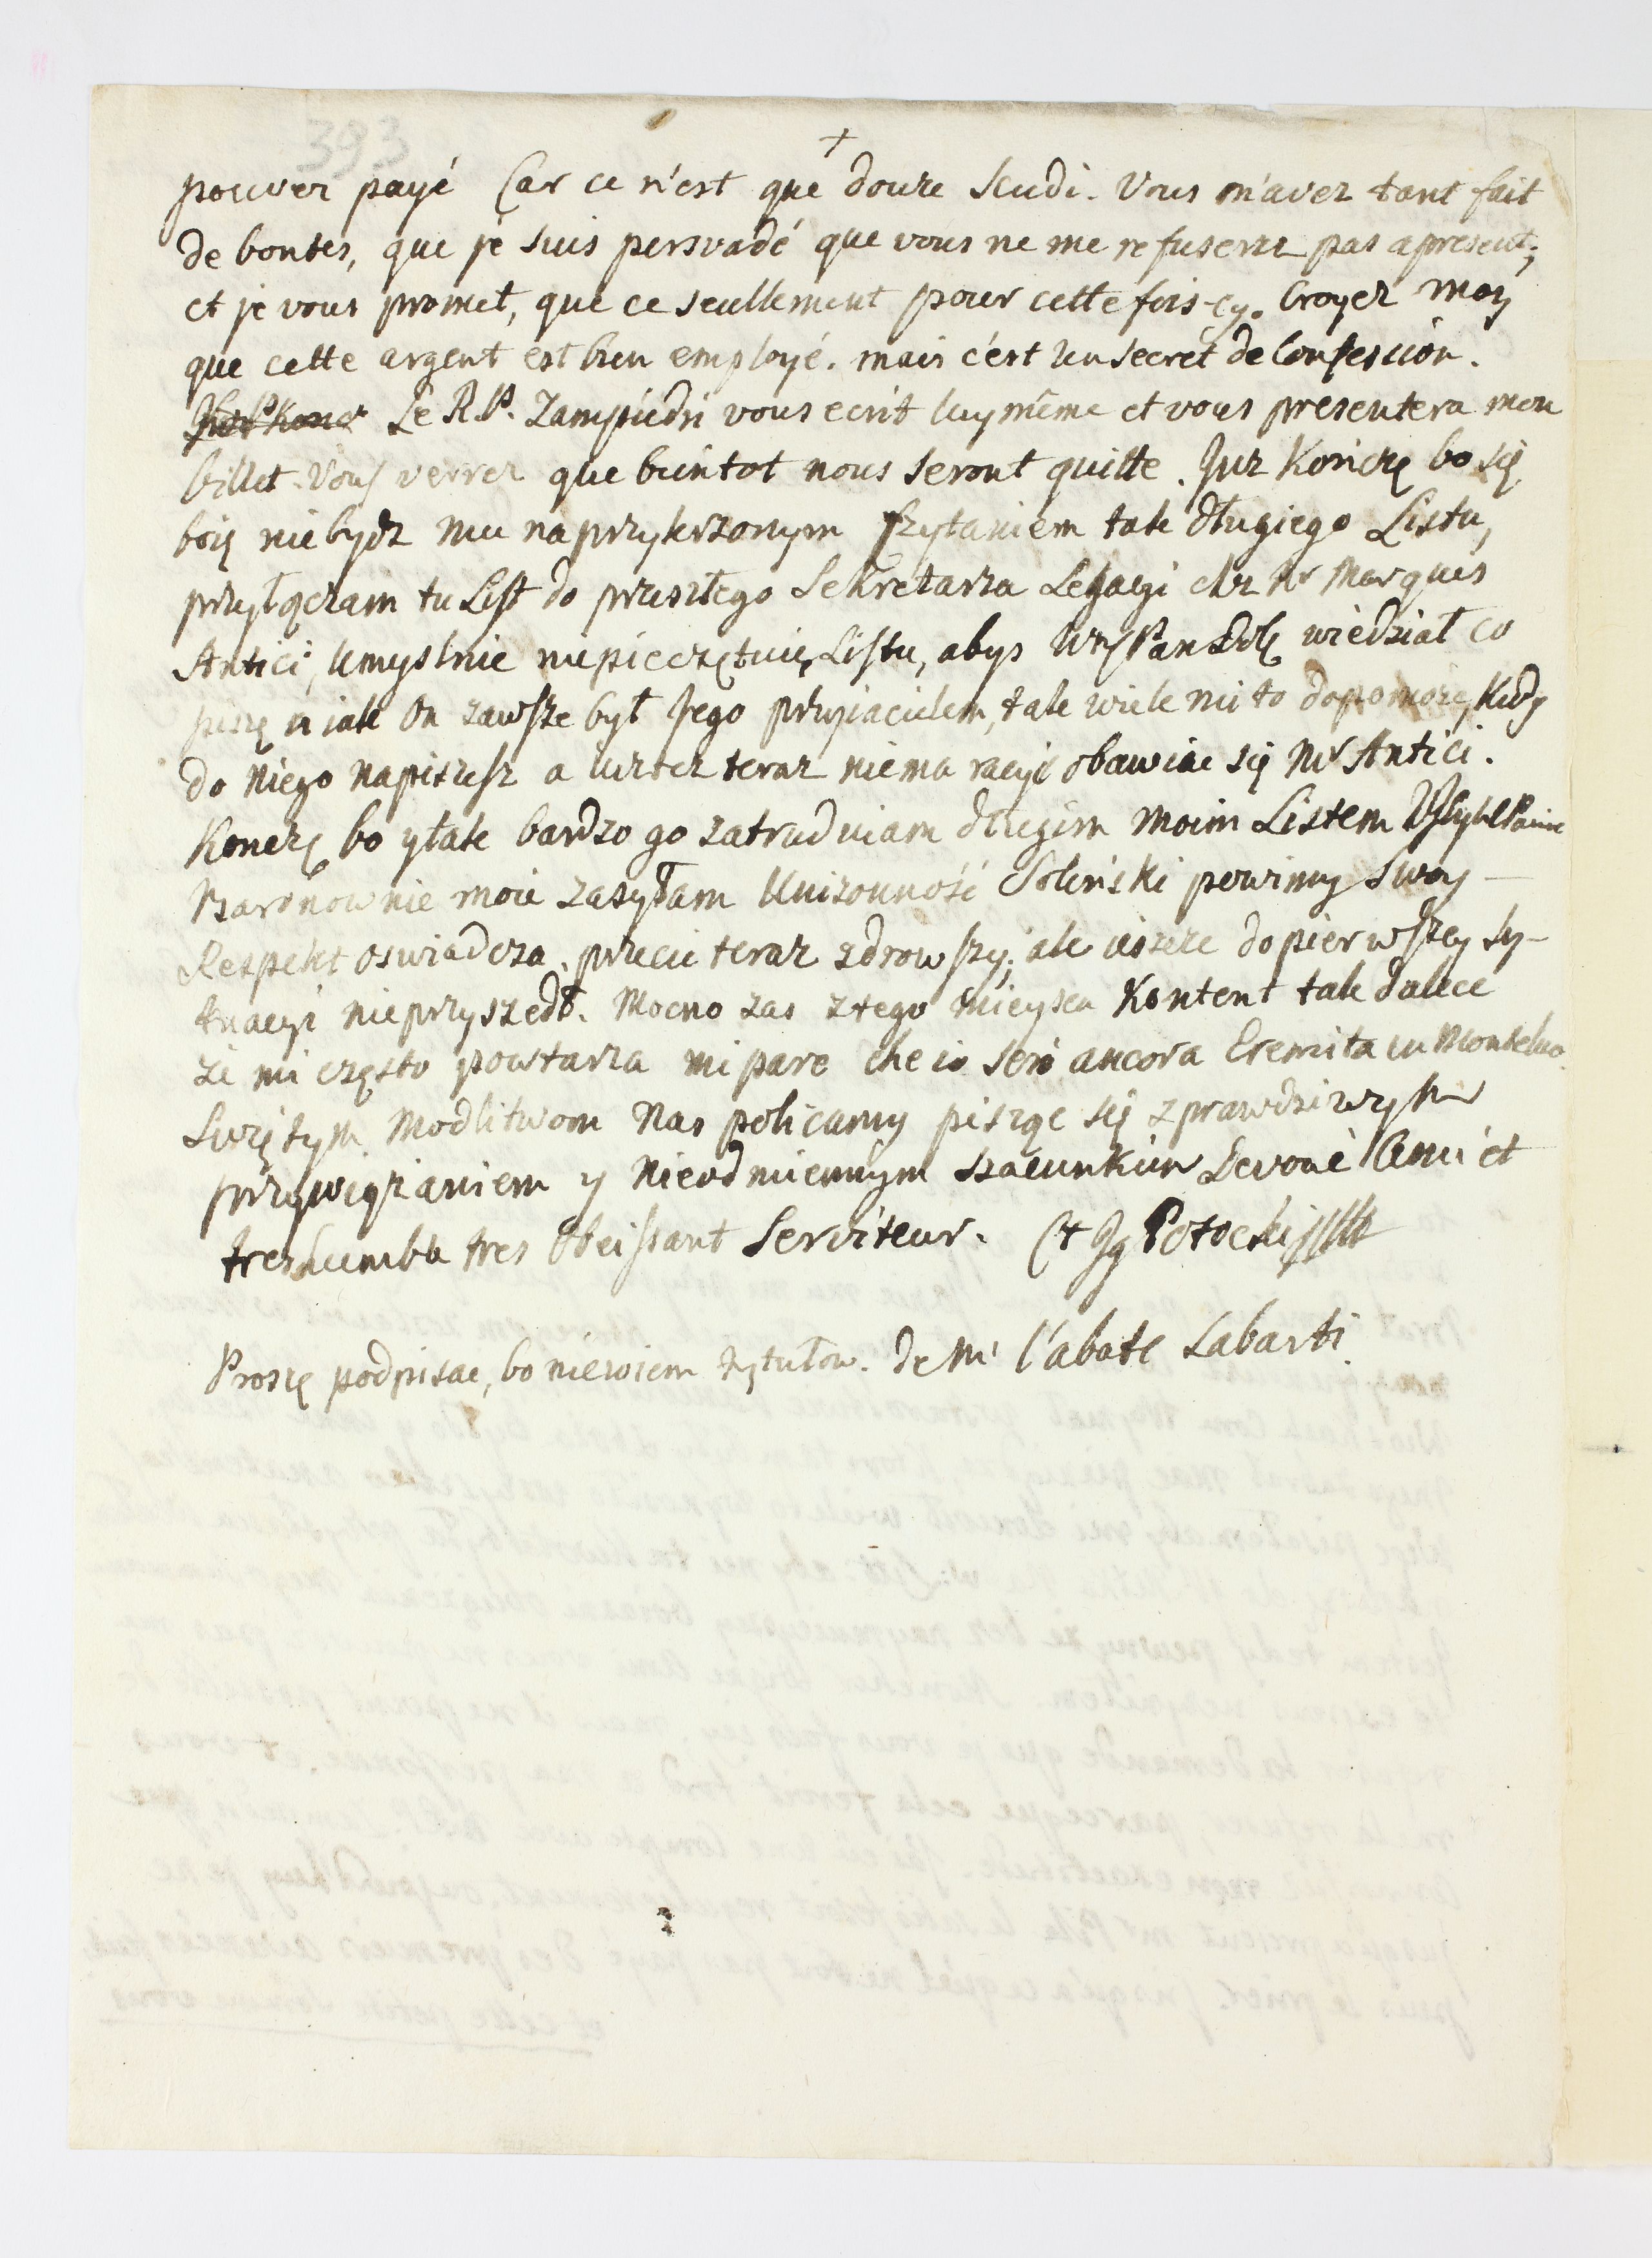 393
+
pouver payé Car ce n'est que douze Scudi. Vous m'avez tant fait
de bontes, que je suis persvadé que vous ne me refuserez pas apresent;
et je vous promet, que ce seullement pour cette fois-cy. Croyez moy
que cette argent est bien employé. mais c'est un secret de Confession.
Le R.P. Zampiedri vous ecrit luy même et vous presentera mon
billet. Vous verrez que bientot nous seront quitte. Juz Kończę bo się
boię niebydz mu naprzykrzonym czytaniem tak długiego Listu,
przyłączam tu List do przeszłego Sekretarza Legacyi chz Mr Marquis
Antici, umyslnie niepieczętuię Listu, abys Pan wiedział co
piszę a iak On zawsze był Jego przyiacielem, tak wiele mi to dopomoże, Kiedy
do Niego napiszesz a wszak teraz niema racyi obawiac się Mr Antici.
Konczę bo ytak bardzo go zatrudniam długim moim Listem
Baronownie moie zasyłam Unizonność Soliński powinny Swoy-
Respekt oswiadcza, przecie teraz zdrowszy; ale ieszcze dopierwszey sy-
tuacyi nieprzyszedł. Mocno zas ztego mieysca Kontent tak dalece
że mi często powtarza mi pare che io serò ancora Eremita in
Swiętym Modlitwom Nas policamy pisząc się z prawdziwym
przywiązaniem y Nieodmiennym szacunkiem Devoué Ami et
tres humble tres Obeissant Serviteur. Ct Jg Potocki
Proszę podpisac, bo niewiem tytułow. de Mr l'abate Labarti